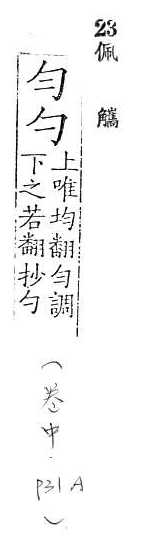 23
佩觿
勻勺
上唯均翻勻調
下之若翻抄勺
(卷中.
P31 A
)